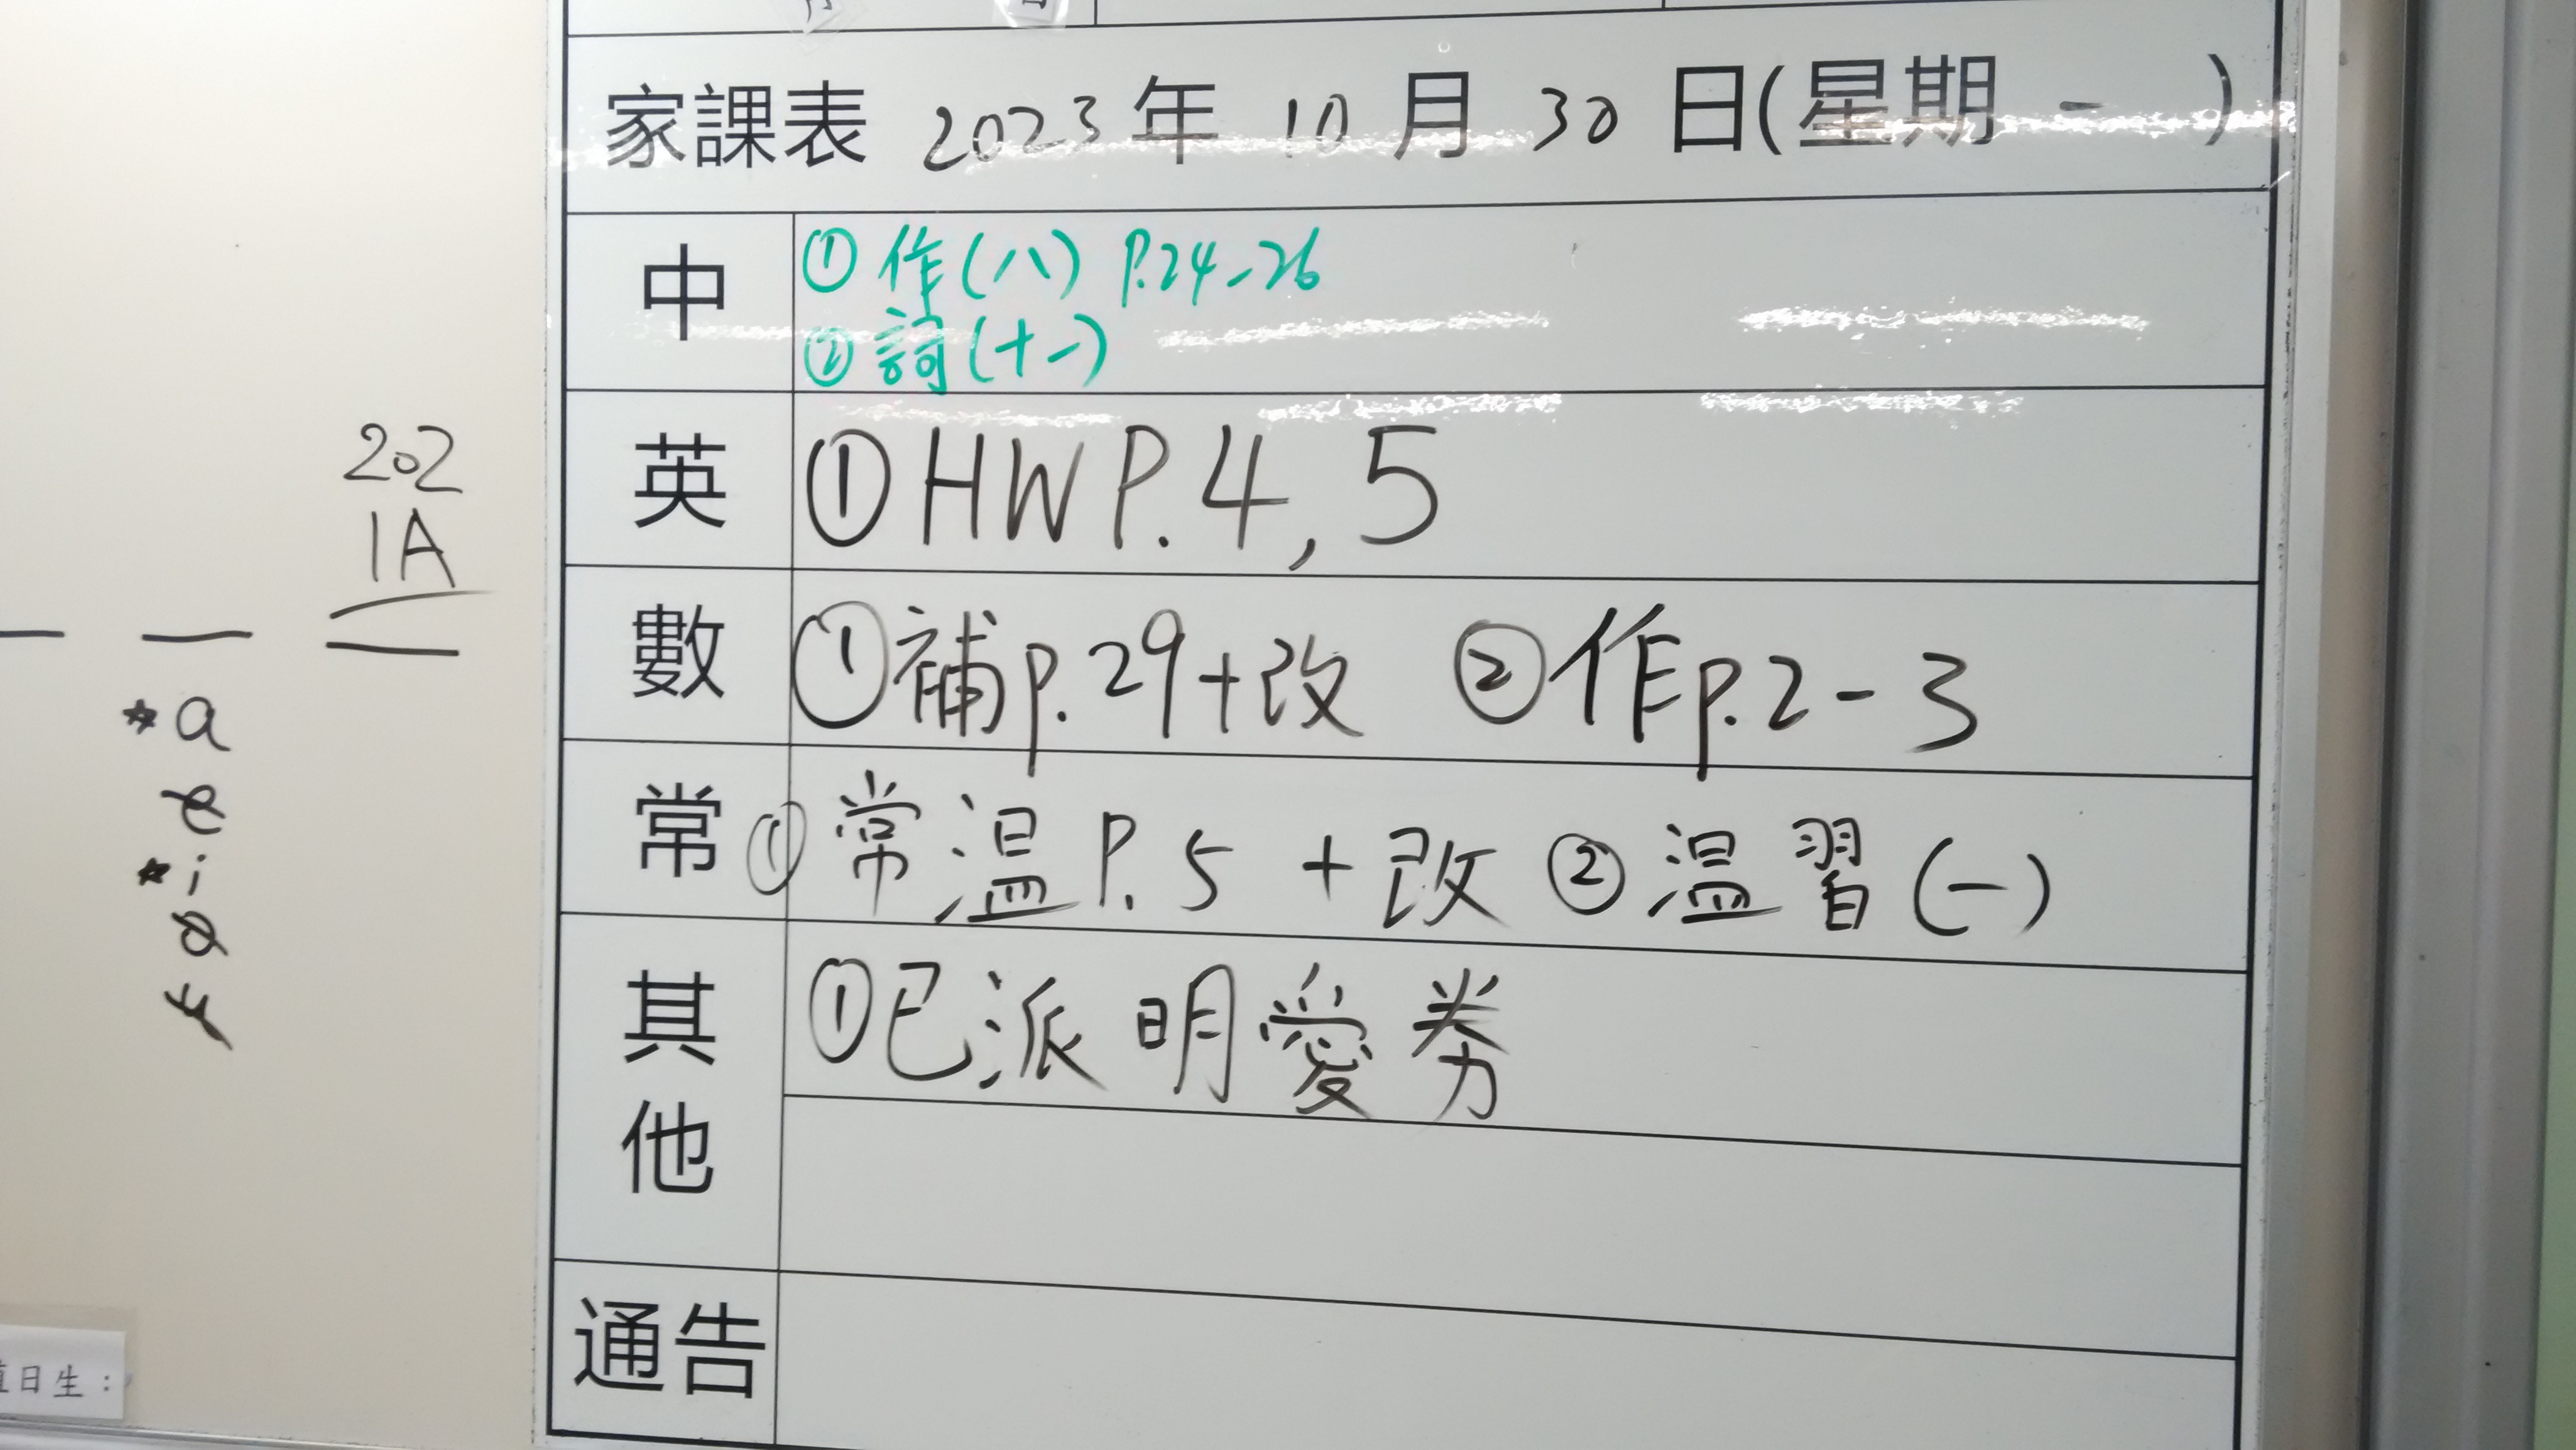 家課表 2023 年 10 月 30 日(星期 一 )
中
① 作(八) P.24-26
② 詞(十一)
英 ① HW P.4, 5
數 ① 補p.29+改 ② 作p.2-3
常 ① 常温P.5 + 改 ② 温習(一)
其他 ① 已派明愛券
通告
202
1A
*a
e
*i
o
u
日生：